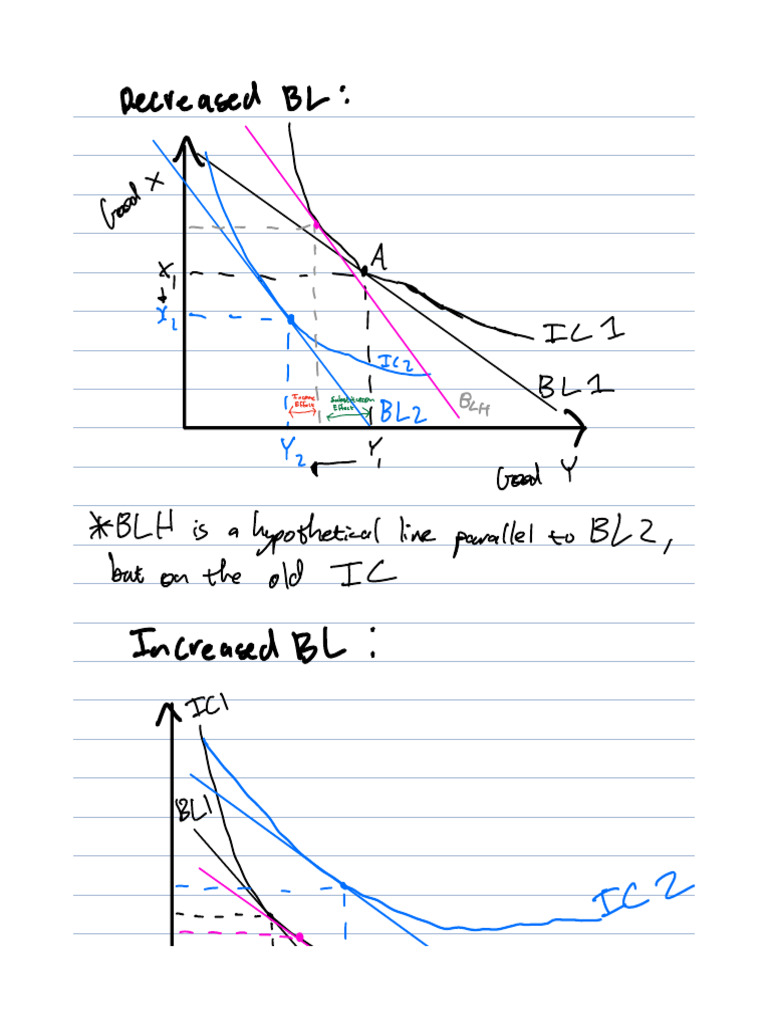 Decreased BL:
Good X
A
X₁
X₂
IC 1
IC2
BL 1
Income
Effect
Substitution
Effect
BL2
BLH
Y₂
Y₁
Good Y
*BLH is a hypothetical line parallel to BL2,
but on the old IC
Increased BL:
IC1
BL1
IC2